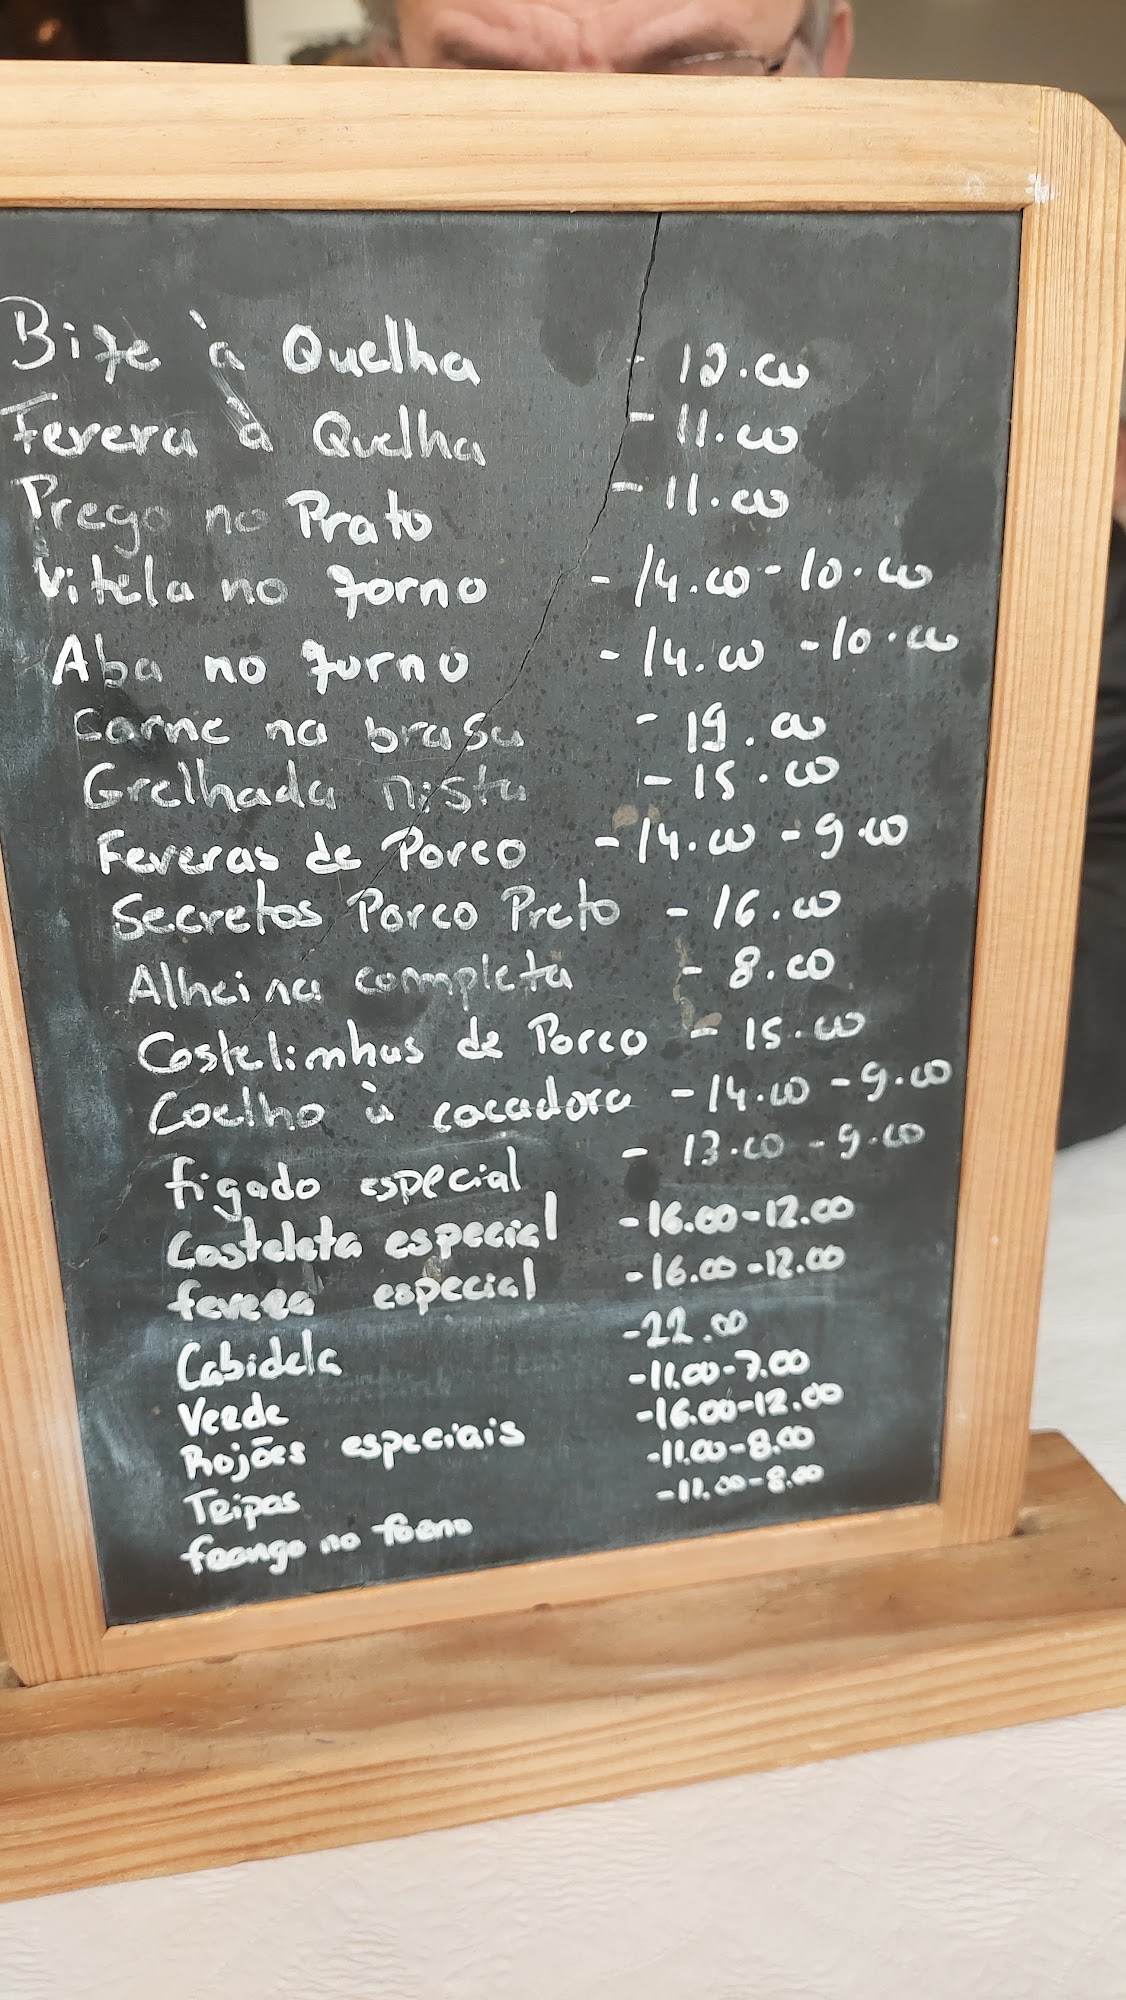 Bife à Quelha - 12.00
Fevera à Quelha - 11.00
Prego no Prato - 11.00
Vitela no forno - 14.00 - 10.00
Aba no forno - 14.00 - 10.00
Carne na brasa - 19.00
Grelhada mista - 15.00
Feveras de Porco - 14.00 - 9.00
Secretos Porco Preto - 16.00
Alheina completa - 8.00
Costelinhas de Porco - 15.00
Coelho à cacadora - 14.00 - 9.00
figado especial - 13.00 - 9.00
Costeleta especial - 16.00 - 12.00
fevera especial - 16.00 - 12.00
Cabidela - 22.00
Verde - 11.00 - 7.00
Rojões especiais - 16.00 - 12.00
Tripas - 11.00 - 8.00
frango no forno - 11.00 - 8.00